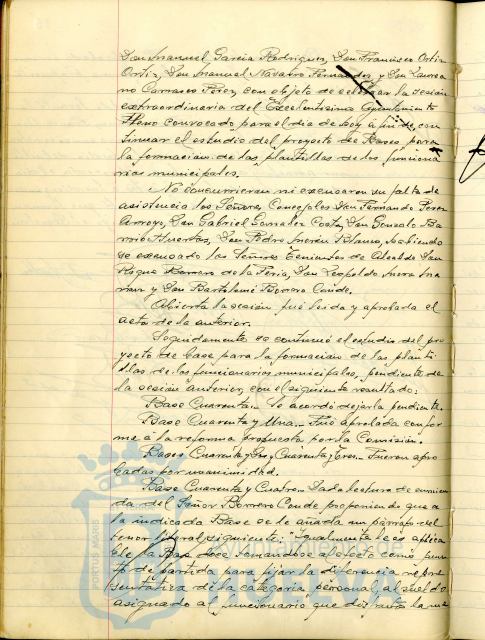 Don Manuel García Rodríguez, Don Francisco Ortiz
Ortiz, Don Manuel Navarro Fernández, y Don Laurea
no Carrasco Pérez, con objeto de celebrar la sesión
extraordinaria del Excelentísimo Ayuntamiento
Pleno convocado para el día de hoy á fin de con
tinuar el estudio del proyecto de Bases para
la formación de las plantillas de los funciona
rios municipales.
No concurrieron ni excusaron su falta de
asistencia los Señores Concejales Don Fernando Pérez
Arroyo, Don Gabriel González Costa, Don Gonzalo Ba
rrio Huertas, Don Pedro Morón Blanco, habiendo
se excusado los Señores Tenientes de Alcalde Don
Roque Barrero de la Feria, Don Leopoldo
y Don Bartolomé Borrero Conde.
Abierta la sesión fué leída y aprobada el
acta de la anterior.
Seguidamente se continuó el estudio del pro
yecto de base para la formación de las planti
llas de los funcionarios municipales, pendiente de
la sesión anterior, con el siguiente resultado:
Base Cuarenta.- Se acordó dejarla pendiente.
Base Cuarenta y Una.- Fué aprobada confor
me á la reforma propuesta por la Comisión.
Bases Cuarenta y Dos y Cuarenta y Tres.- Fueron apro
badas por unanimidad.
Base Cuarenta y Cuatro.- Dada lectura de enmien
da del Señor Borrero Conde proponiendo que a
la indicada Base se le añada un párrafo del
tenor literal siguiente: "Igualmente les es aplica
ble la Base doce tomándose al efecto como pun
to de partida para fijar la diferencia repre
sentativa de la categoría personal, al sueldo
asignado al funcionario que disfrute la me
PORTUS MARIS
HUELVA